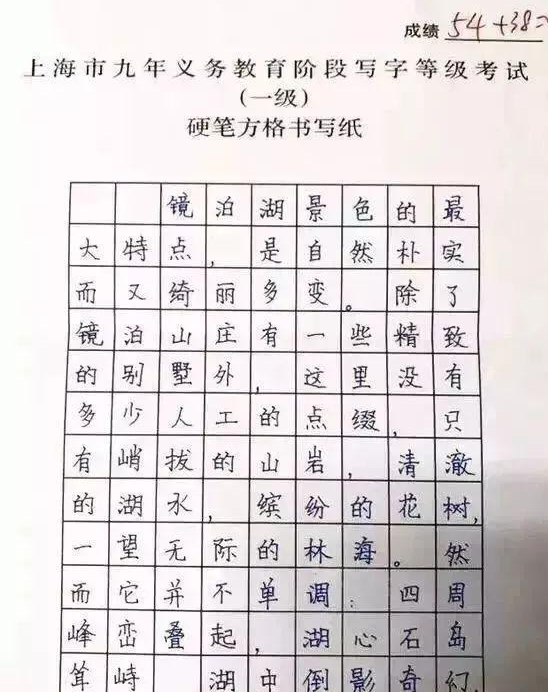 成绩 54+38=
上海市九年义务教育阶段写字等级考试
(一级)
硬笔方格书写纸
镜泊湖景色的最
大特点，是自然朴实
而又绮丽多变。除了
镜泊山庄有一些精致
的别墅外，这里没有
多少人工的点缀，只
有峭拔的山岩，清澈
的湖水，缤纷的花树，
一望无际的林海。然
而它并不单调：四周
峰峦叠起，湖心石岛
耸峙 湖中倒影奇幻